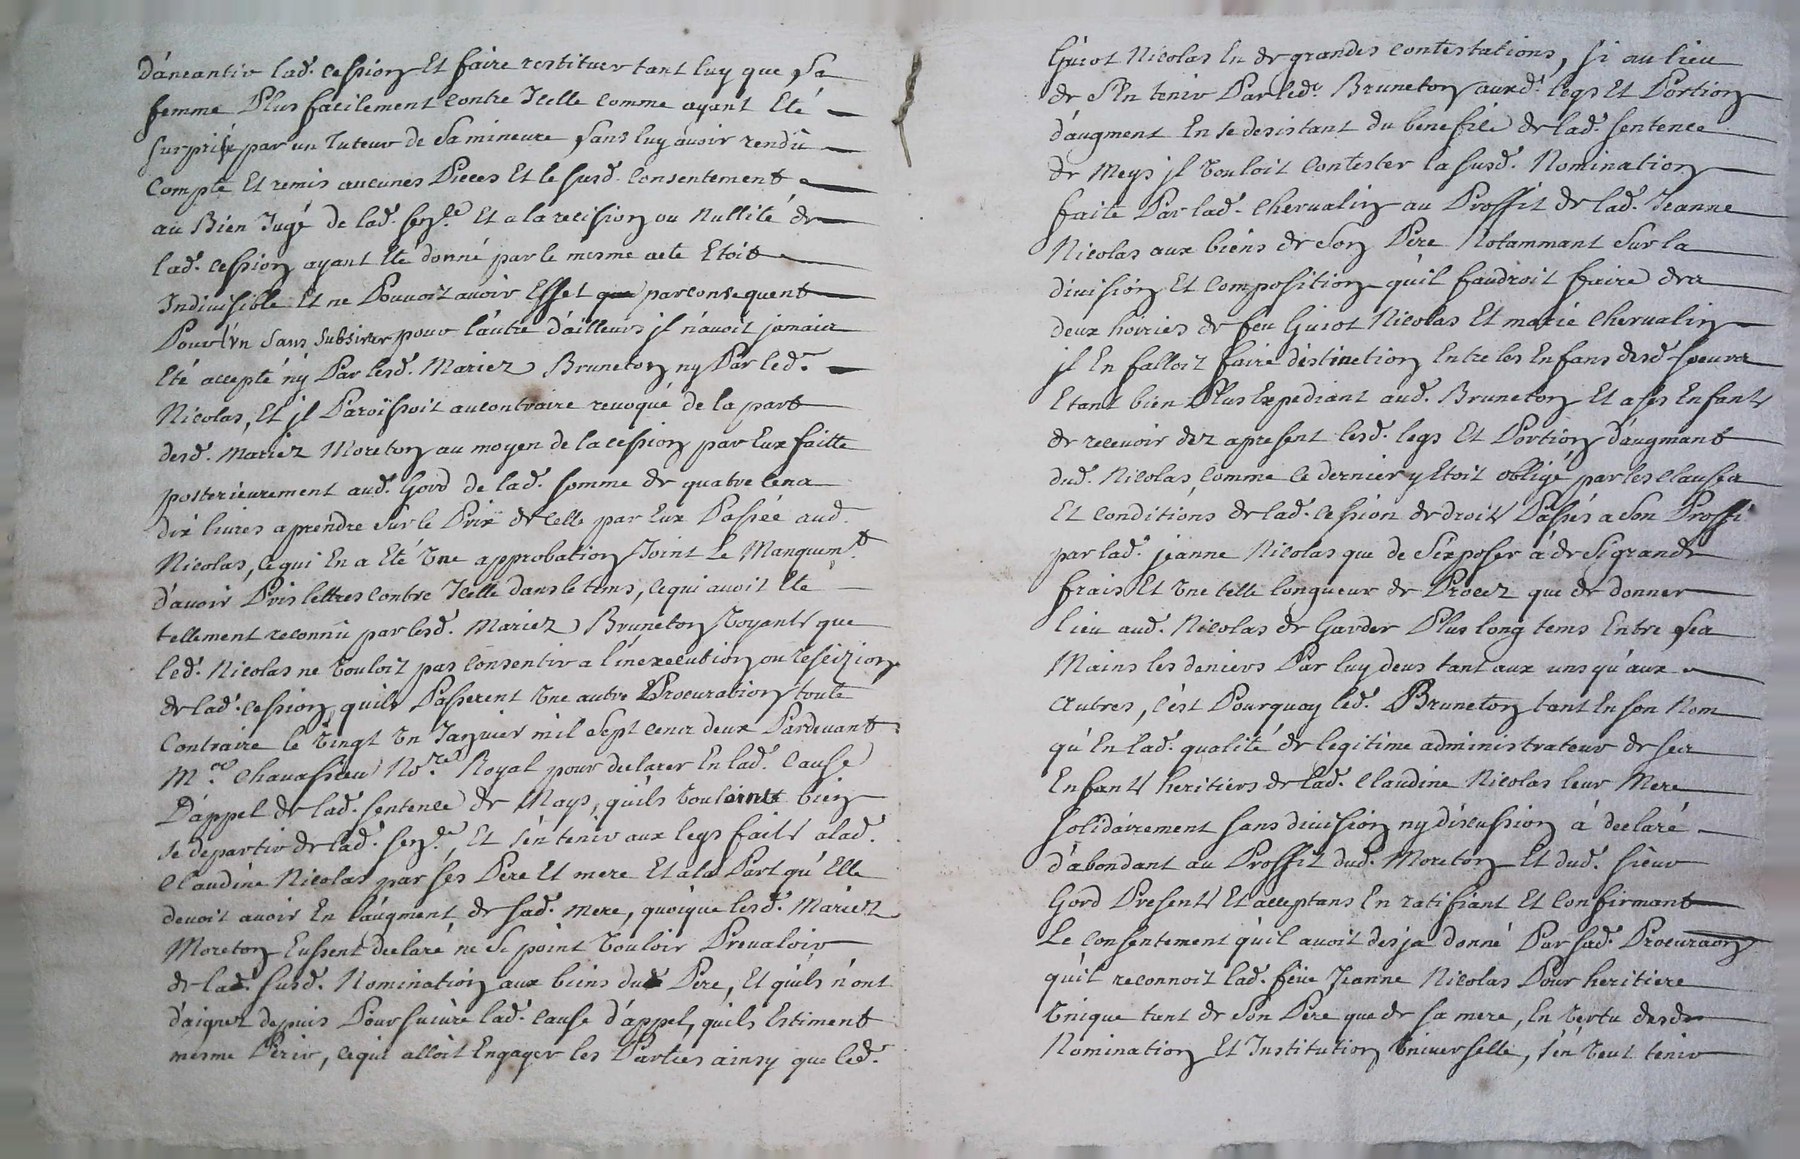 d'aneantir lad. cession Et faire restituer tant luy que sa
femme Plus facilement contre Icelle comme ayant Eté
surprise par un Tuteur de sa mineure sans luy avoir rendû
compte Et remis aucunes Pieces Et le susd. consentement
au Bien Jugé de lad. senˢᵉ Et a la recision ou Nullité de
lad. cession ayant Eté donné par le mesme acte Etoit
Indivisible Et ne Pouvoit avoir Effet par consequent
Pour L'un sans subsister pour l'autre d'ailleurs jl n'avoit jamais
Eté accepté ny Par lesd. Mariez Bruneton ny Par led.
Nicolas, Et jl Paroissoit au contraire revoqué de la part
desd. Mariez Moreton au moyen de la cession par Eux faitte
posterieurement aud. Gord de lad. somme de quatre cens
dix livres a prendre sur le Prix de celle par Eux Passée aud.
Nicolas, ce qui En a Eté Une approbation Joint Le Manquemᵗ
d'avoir Pris lettres contre Icelle dans le tems, ce qui avoit Eté
tellement reconnû par lesd. Mariez Bruneton Voyants que
led. Nicolas ne Vouloit pas consentir a l'inexecution ou resêizion
de lad. cession, quils Passerent Une autre Procuration toute
Contraire le Vingt Un Janvier mil sept cens deux Pardevant
Mʳᵉ Chavassieu Noʳᵉ Royal pour declarer En lad. Cause
D'appel de lad. sentence de Mays, quils Vouloint bien
se departir de lad. senᶜᵉ, Et s'en tenir aux legs faits a lad.
Claudine Nicolas par ses Pere Et mere Et a la Part qu'Elle
devoit avoir En l'augment de sad. Mere, quoique lesd. Mariez
Moreton Eussent declaré ne se point Vouloir Prevaloir
de lad. susd. Nomination aux biens dud Pere, Et quils n'ont
d'aignez depuis Poursuivre lad. cause d'appel, quils Estiment
mesme Périr, ce qui alloit Engager les Parties ainsy que led.
Guiot Nicolas En de grandes contestations, si au lieu
de s'En tenir Par led. Bruneton auxd. legs Et Portion
d'augment En se desistant du benefice de lad. sentence
de Meys jl Vouloit Contester la susd. Nomination
faite Par lad. Chervalin au Proffit de lad. Jeanne
Nicolas aux biens de son Pere Notammant sur la
division Et composition qu'il faudroit faire des
deux hoiries de feu Guiot Nicolas Et marie Chervalin
jl En falloit faire distinction Entre les Enfans desd. soeurs
Etant bien Plus Expediant aud. Bruneton Et a ses Enfants
de recevoir dez apresent lesd. legs Et Portion d'augmant
dud. Nicolas, comme ce dernier y Etoit obligé par les clauses
Et conditions de lad. cession de droits Passés a son Proffi
par lad. jeanne Nicolas que de s'exposer à de si grands
frais Et Une telle longueur de Procez que de donner
lieu aud. Nicolas de Garder Plus long tems Entre ses
Mains les deniers Par luy deus tant aux uns qu'aux
autres, c'est Pourquoy led. Bruneton tant En son Nom
qu'En lad. qualité de legitime administrateur de ses
Enfants heritiers de lad. Claudine Nicolas leur Mere
solidairement sans division ny discussion à declaré
d'abondant au Proffit dud. Moreton Et dud. sieur
Gord Presents Et acceptans En ratifiant Et confirmant
Le consentement qu'il avoit desja donné Par sad. Procuraon
qu'il reconnoit lad. feüe Jeanne Nicolas Pour heritiere
Unique tant de son Pere que de sa mere, En Vertu desd.
Nomination Et Institution Universelle, s'en Veut tenir